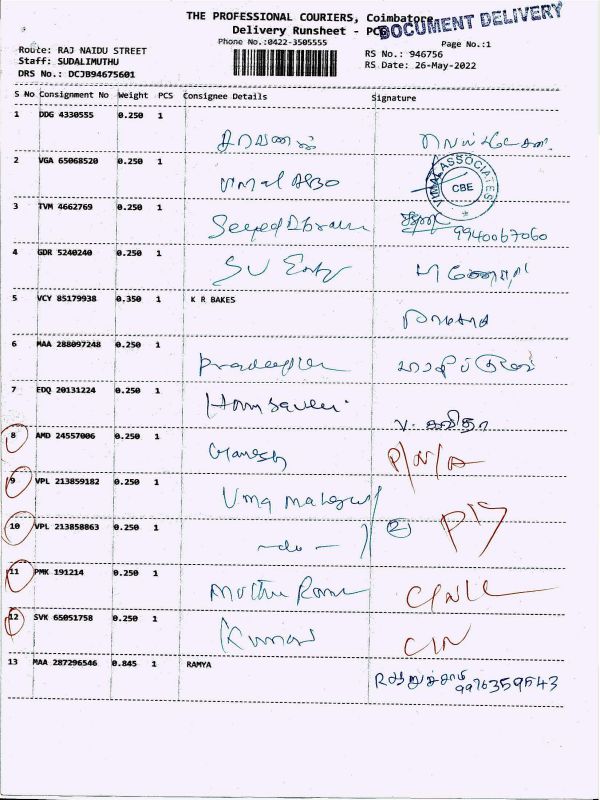 THE PROFESSIONAL COURIERS, Coimbatore
DOCUMENT DELIVERY
Delivery Runsheet - PCB
Phone No.:0422-3505555
Page No.:1
Route: RAJ NAIDU STREET
RS No.: 946756
Staff: SUDALIMUTHU
RS Date: 26-May-2022
DRS No.: DCJB94675601
S No Consignment No Weight PCS Consignee Details Signature
1 DDG 4330555 0.250 1
சரவணன்
2 VGA 65068520 0.250 1
Vimal Asso
VIMAL ASSOCIATES
CBE
3 TVM 4662769 0.250 1
9940067060
4 GDR 5240240 0.250 1
SU
5 VCY 85179938 0.350 1 K R BAKES
6 MAA 288097248 0.250 1
7 EDQ 20131224 0.250 1
v. கவிதா
8 AMD 24557006 0.250 1
Ganesh P/N/A
9 VPL 213859182 0.250 1
Uma
10 VPL 213858863 0.250 1
-do- 2
11 PMK 191214 0.250 1
Muthu
12 SVK 65051758 0.250 1
Kumar
13 MAA 287296546 0.845 1 RAMYA